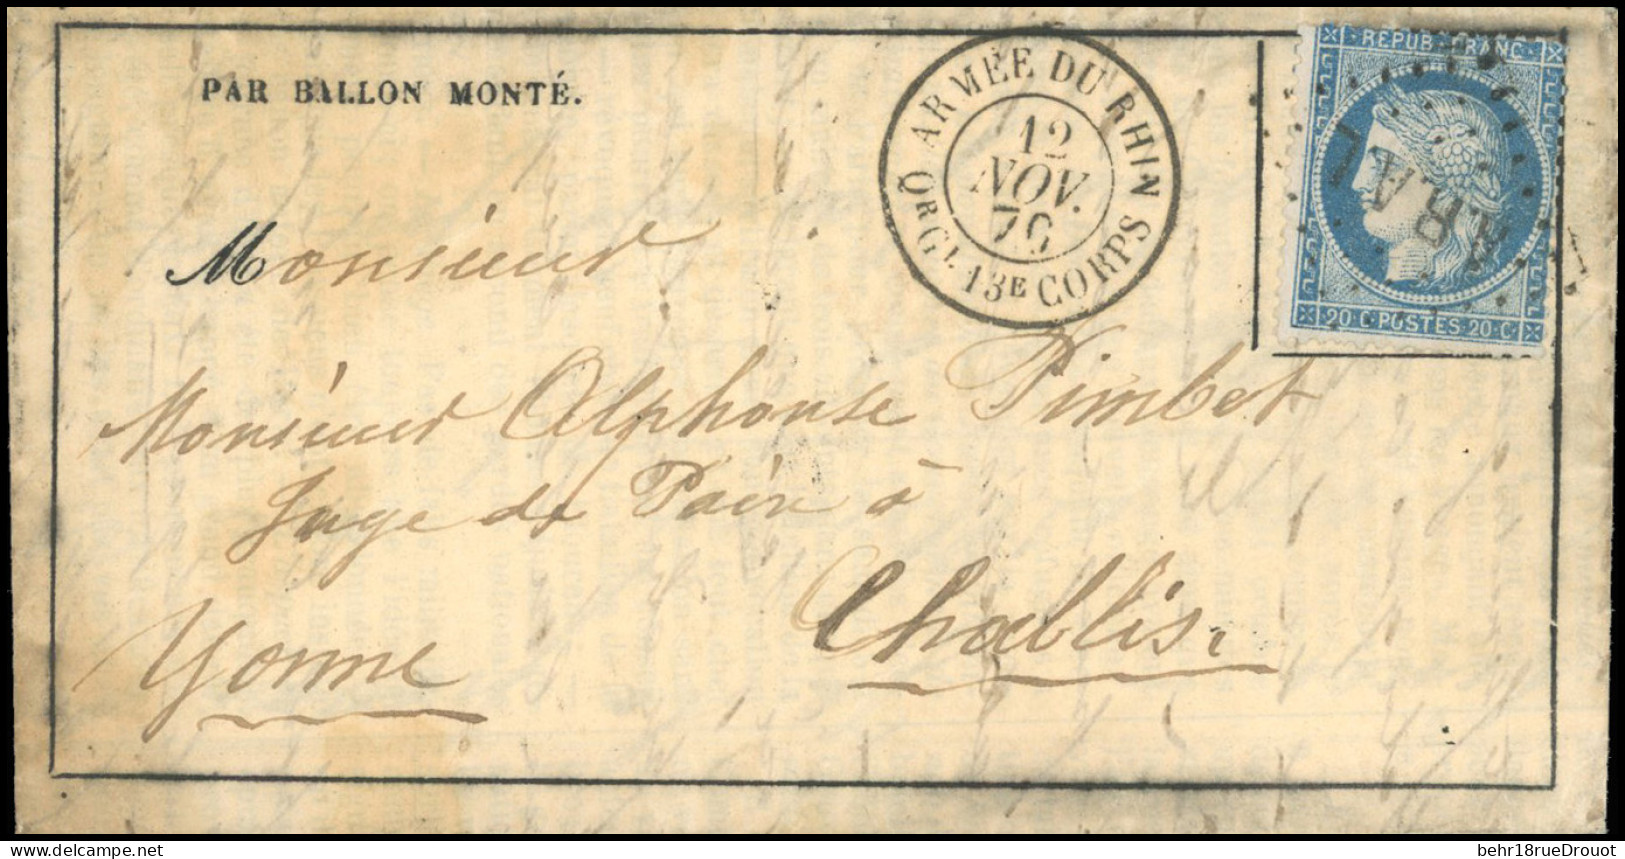 PAR BALLON MONTÉ.
ARMÉE DU RHIN
12
NOV.
70
QR GL 13E CORPS
REPUB FRANC
20 C POSTES 20 C
Monsieur
Monsieur Alphonse Pimbet
Juge de Paix à
Chablis.
Yonne
delcampe.net
behr18rueDrouot